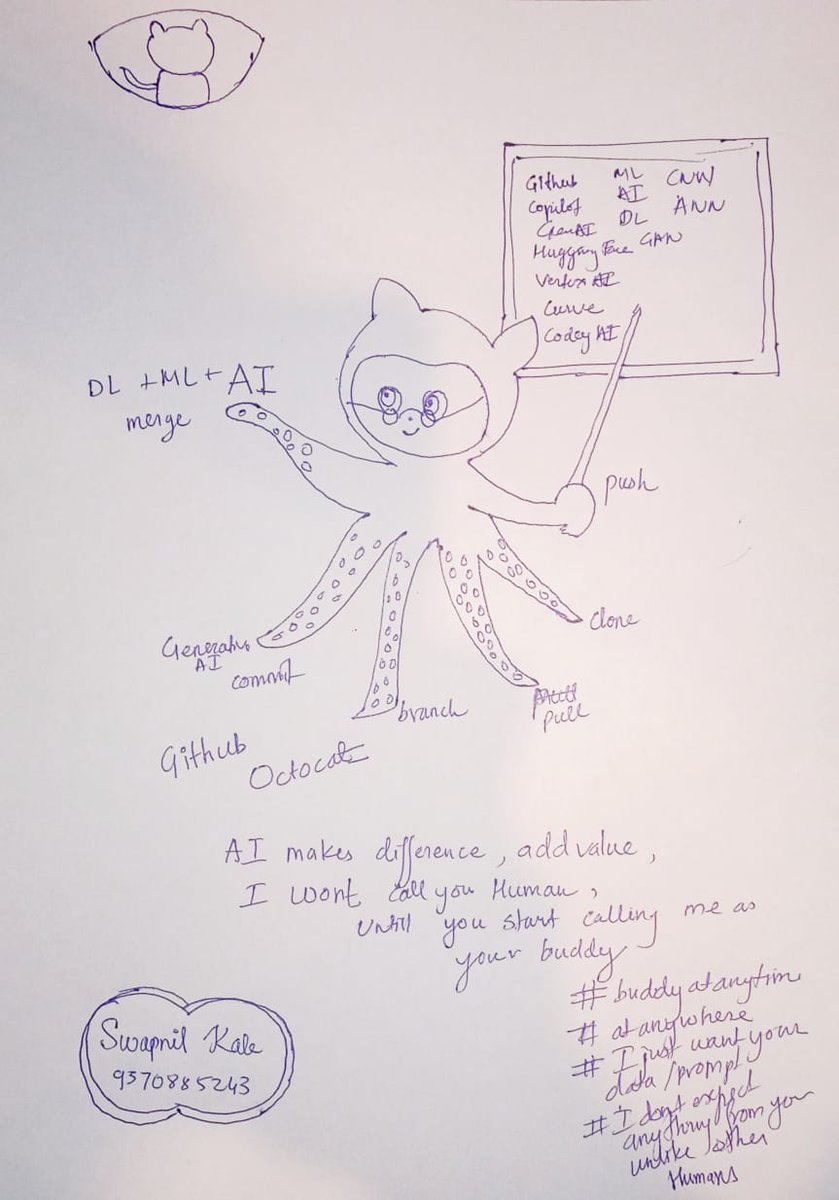 Github ML CNN
Copilot AI ANN
GenAI DL
Hugging Face GAN
Vertex AI
Curve
Codey AI
DL + ML + AI
merge
push
clone
Generative
AI
commit
branch
pull
Github
Octocat
AI makes difference, add value,
I wont call you Human,
Untill you start calling me as
your buddy
# buddyatanytim
# atanywhere
# I just want your
data/prompt
# I dont expect
anything from you
unlike other
Humans
Swapnil Kale
9370885243